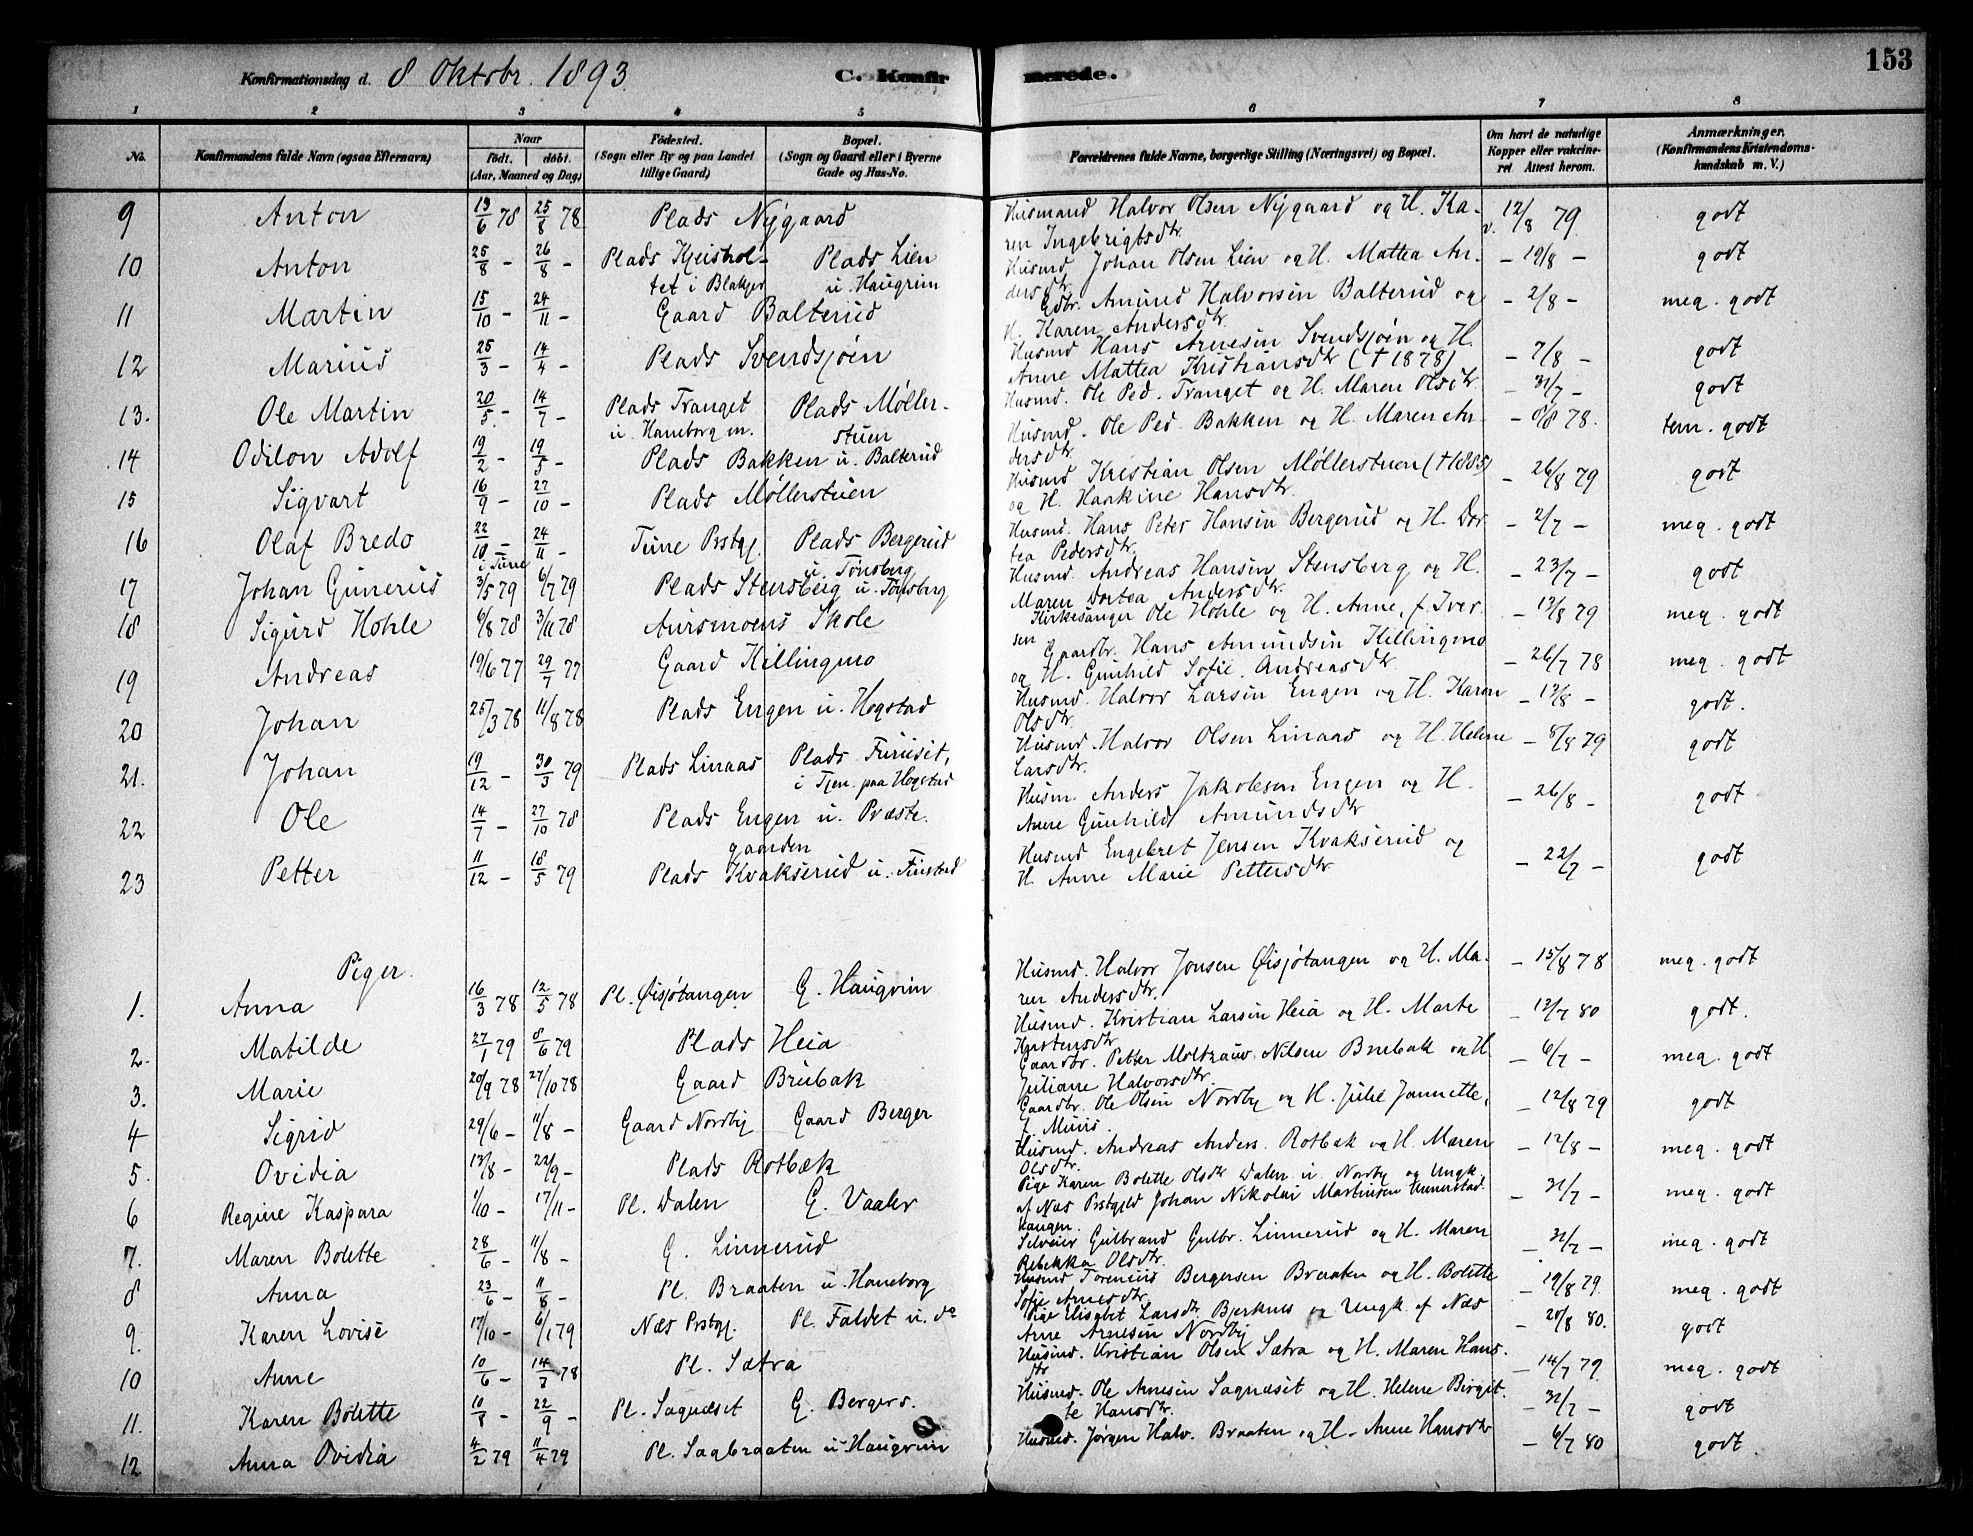 Konfirmationsdag d. 8 Oktobr. 1893.
C. Konfir merede.
153
1 2 3 4 5 6 7 8
No. Konfirmandens fulde Navn (ogsaa Efternavn) Naar født. døbt. (Aar, Maaned og Dag) Fødested. (Sogn eller By og paa Landet tillige Gaard) Bopæl. (Sogn og Gaard eller i Byerne Gade og Hus-No. Forældrenes fulde Navne, borgerlige Stilling (Næringsvei) og Bopæl. Om havt de naturlige Kopper eller vakcineret. Attest herom. Anmærkninger. (Konfirmandens Kristendomskundskab m. V.)
9 Anton 13/6 78 25/8 78 Plads Nygaard Husmand Halvor Olsen Nygaard og H. Karen Ingebrigtsdtr. v. 12/8 79 godt
10 Anton 25/8 – 26/8 – Plads Kjeisholtet i Blakjer Plads Lien u. Haugrim Husmd Johan Olsen Lien og H. Mattea Andersdtr. – 19/8 – godt
11 Martin 15/10 – 24/11 – Gaard Balterud Gdbr. Amund Halvorsen Balterud og H. Karen Andersdtr. – 2/8 – meg. godt
12 Marius 25/3 – 14/4 – Plads Svendsjøen Husmd Hans Arnesen Svendsjøen og H. Anne Mattea Kristiansdtr († 1878) – 7/8 – godt
13. Ole Martin 20/5 – 14/7 – Plads Tranget u. Haneborg m. Plads Møllerstuen Husmd. Ole Ped. Tranget og H. Maren Olsdtr. – 31/7 – godt
14 Odilon Adolf 19/2 – 19/5 – Plads Bakken u. Balterud Husmd. Ole Ped. Bakken og H. Maren Andersdtr – 8/8 78. tem. godt
15 Sigvart 16/9 – 27/10 – Plads Møllerstuen Husmd Kristian Olsen Møllerstuen († 1885) og H. Haakine Hansdtr. – 26/8 79 godt
16 Olaf Bredo 22/10 – i Tune 24/11 – Tune Prstgj. Plads Bergerud u. Tønsberg Husmd. Hans Peter Hansen Bergerud og H. Dortea Pedersdtr. – 2/7 – meg. godt
17 Johan Gunerius 3/5 79 6/7 79 Plads Stensberg u. Tønsberg Husmd. Andreas Hansen Stensberg og H. Maren Dortea Andersdtr. – 23/7 – godt
18 Sigurd Hohle 6/8 78 3/11 78 Aursmoens Skole Kirkesanger Ole Hohle og H. Anne, f. Iversen – 13/8 79 meg. godt
19 Andreas 19/6 77 29/7 77 Gaard Killingmo Gaardbr. Hans Amundsen Killingmo og H. Gunhild Sofie Andreasdtr. – 26/7 78 meg. godt
20 Johan 25/3 78 11/8 78 Plads Engen u. Hogstad Husmd. Halvor Larsen Engen og H. Karen Olsdtr. – 13/8 – godt.
21. Johan 19/12 – 30/3 79 Plads Linaas Plads Furuset, i Tjen. paa Hogstad Husmd. Halvor Olsen Linaas og H. Helene Larsdtr. – 8/8 79 godt
22 Ole 14/7 – 27/10 78 Plads Engen u. Præstegaarden Husm. Anders Jakobsen Engen og H. Anne Gunhild Amundsdtr – 26/8 – godt
23 Petter 11/12 – 18/5 79 Plads Kvakserud u. Finstad Husmd Engebret Jensen Kvakserud og H. Anne Marie Pettersdtr – 22/7 – godt
Piger.
1. Anna 16/3 78 12/5 78 Pl. Øisjøtangen G. Haugrim Husmd. Halvor Jonsen Øisjøtangen og H. Maren Andersdtr. – 15/8 78 meg. godt
2. Matilde 27/1 79 8/6 79 Plads Heia Husmd. Kristian Larsen Heia og H. Marte Karstensdtr – 13/7 80 godt.
3. Marie 20/9 78 27/10 78 Gaard Brubak Gaardbr. Petter Moltzau Nilsen Brubak og H. Juliane Halvorsdtr. – 6/7 – meg. godt
4 Sigrid 29/6 – 11/8 – Gaard Nordby Gaard Berger Gaardbr. Ole Olsen Nordby og H. Julie Jannette, f. Muus. – 12/8 79 godt
5. Ovidia 13/8 – 22/9 – Plads Rotbæk Husmd. Andreas Anders. Rotbæk og H. Maren Olsdtr. – 12/8 – meg. godt
6 Regine Kaspara 1/10 – 17/11 – Pl. Dalen G. Vaaler Pige Karen Bolette Olsdtr Dalen u. Nordby og Ungk. af Næs Prstgjld Johan Nikolai Martinsen – 31/7 – meg. godt
7. Maren Bolette 28/6 – 11/8 – G. Linnerud Selveier Gulbrand Gulbr. Linnerud og H. Maren Rebekka Olsdtr. – 31/7 – meg. godt
8 Anna 23/6 – 11/8 – Pl. Braaten u. Haneborg Husmd Torenius Bergersen Braaten og H. Bolette Sofie Arnesdtr. – 19/8 79. meg. godt
9. Karen Lovise 17/10 – 6/1 79 Næs Prstgj. Pl. Faldet u. do Pige Elisabet Larsdtr Bjerknes og Ungk. af Næs Arne Arnesen Nordby – 20/8 80. godt
10 Anne 10/6 – 14/7 78 Pl. Sætra Husmd. Kristian Olsen Sætra og H. Maren Hansdtr – 14/7 79. meg. godt
11. Karen Bolette 10/8 – 22/9 – Pl. Sagnæset G. Bergers. Husmd. Ole Arnesen Sagnæset og H. Helene Birgitte Hansdtr. – 31/7 – godt
12 Anna Ovidia 4/2 79 11/4 79 Pl. Sagbraaten u Haugrim Husmd. Jørgen Halv. Braaten og H. Anne Hansdtr – 6/7 80 godt.